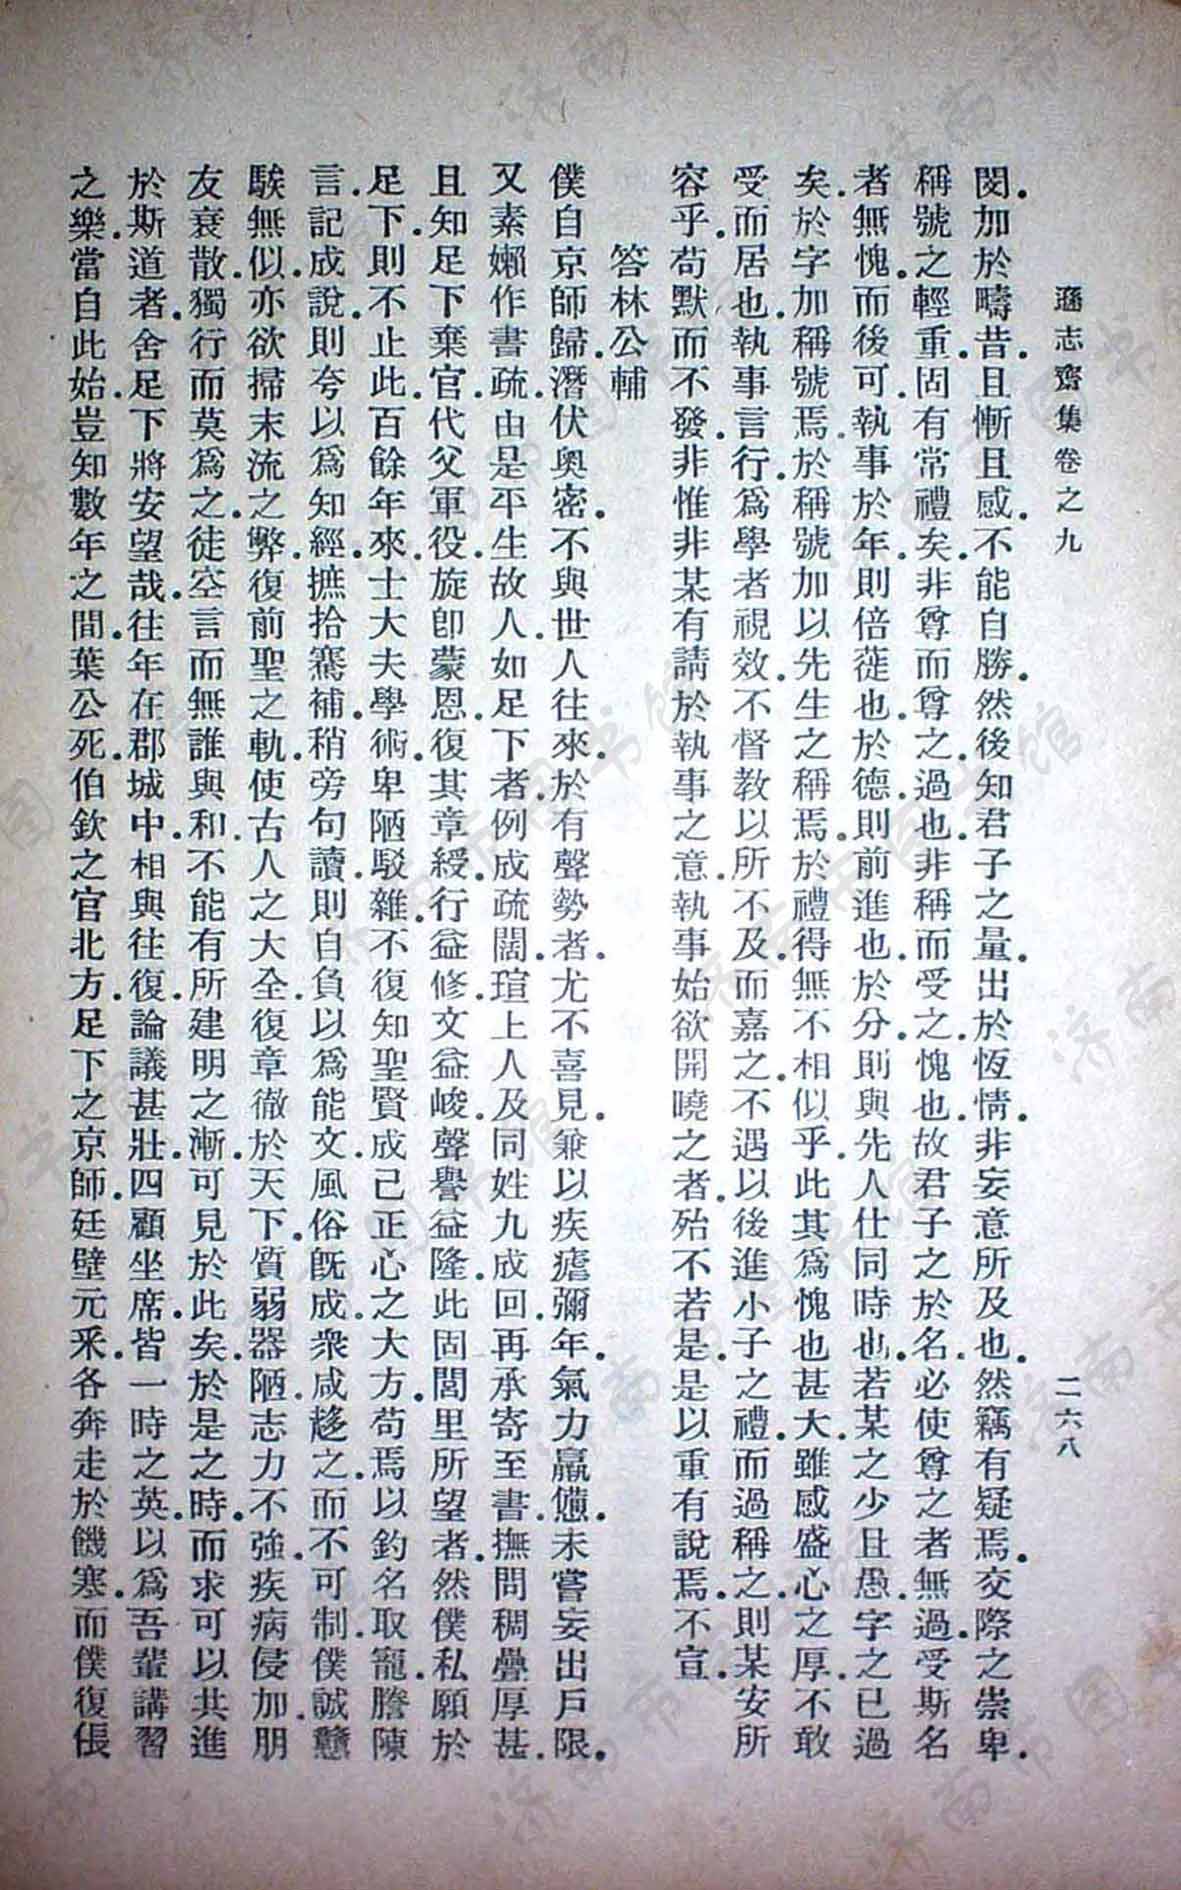 遜志齋集卷之九　二六八
閔.加於疇昔.且慚且感.不能自勝.然後知君子之量.出於恆情.非妄意所及也.然竊有疑焉.交際之崇卑.
稱號之輕重.固有常禮矣.非尊而尊之.過也.非稱而受之.愧也.故君子之於名.必使尊之者無過.受斯名
者無愧.而後可.執事於年.則倍蓰也.於德.則前進也.於分.則與先人仕同時也.若某之少且愚.字之已過
矣.於字加稱號焉.於稱號加以先生之稱焉.於禮得無不相似乎.此其爲愧也甚大.雖感盛心之厚.不敢
受而居也.執事言行.爲學者視效.不督教以所不及.而嘉之.不遇以後進小子之禮.而過稱之.則某安所
容乎.苟默而不發.非惟非某有請於執事之意.執事始欲開曉之者.殆不若是.是以重有說焉.不宣.
答林公輔
僕自京師歸.潛伏奧密.不與世人往來.於有聲勢者.尤不喜見.兼以疾瘧彌年.氣力羸憊.未嘗妄出戶限.
又素嬾作書疏.由是平生故人.如足下者.例成疏闊.瑄上人及同姓九成回.再承寄至書.撫問稠疊.厚甚.
且知足下棄官.代父軍役.旋卽蒙恩.復其章綬.行益修.文益峻.聲譽益隆.此固閭里所望者.然僕私願於
足下.則不止此.百餘年來.士大夫學術.卑陋駁雜.不復知聖賢成己正心之大方.苟焉以釣名取寵.謄陳
言.記成說.則夸以爲知經.摭拾騫補.稍旁句讀.則自負以爲能文.風俗旣成.衆咸趍之.而不可制.僕誠戇
騃無似.亦欲掃末流之弊.復前聖之軌.使古人之大全.復章徹於天下.質弱器陋.志力不強.疾病侵加.朋
友衰散.獨行而莫爲之徒.空言而無誰與和.不能有所建明之漸.可見於此矣.於是之時.而求可以共進
於斯道者.舍足下將安望哉.往年在郡城中.相與往復.論議甚壯.四顧坐席.皆一時之英.以爲吾輩講習
之樂.當自此始.豈知數年之間.葉公死.伯欽之官北方.足下之京師.廷璧元釆.各奔走於饑寒.而僕復倀